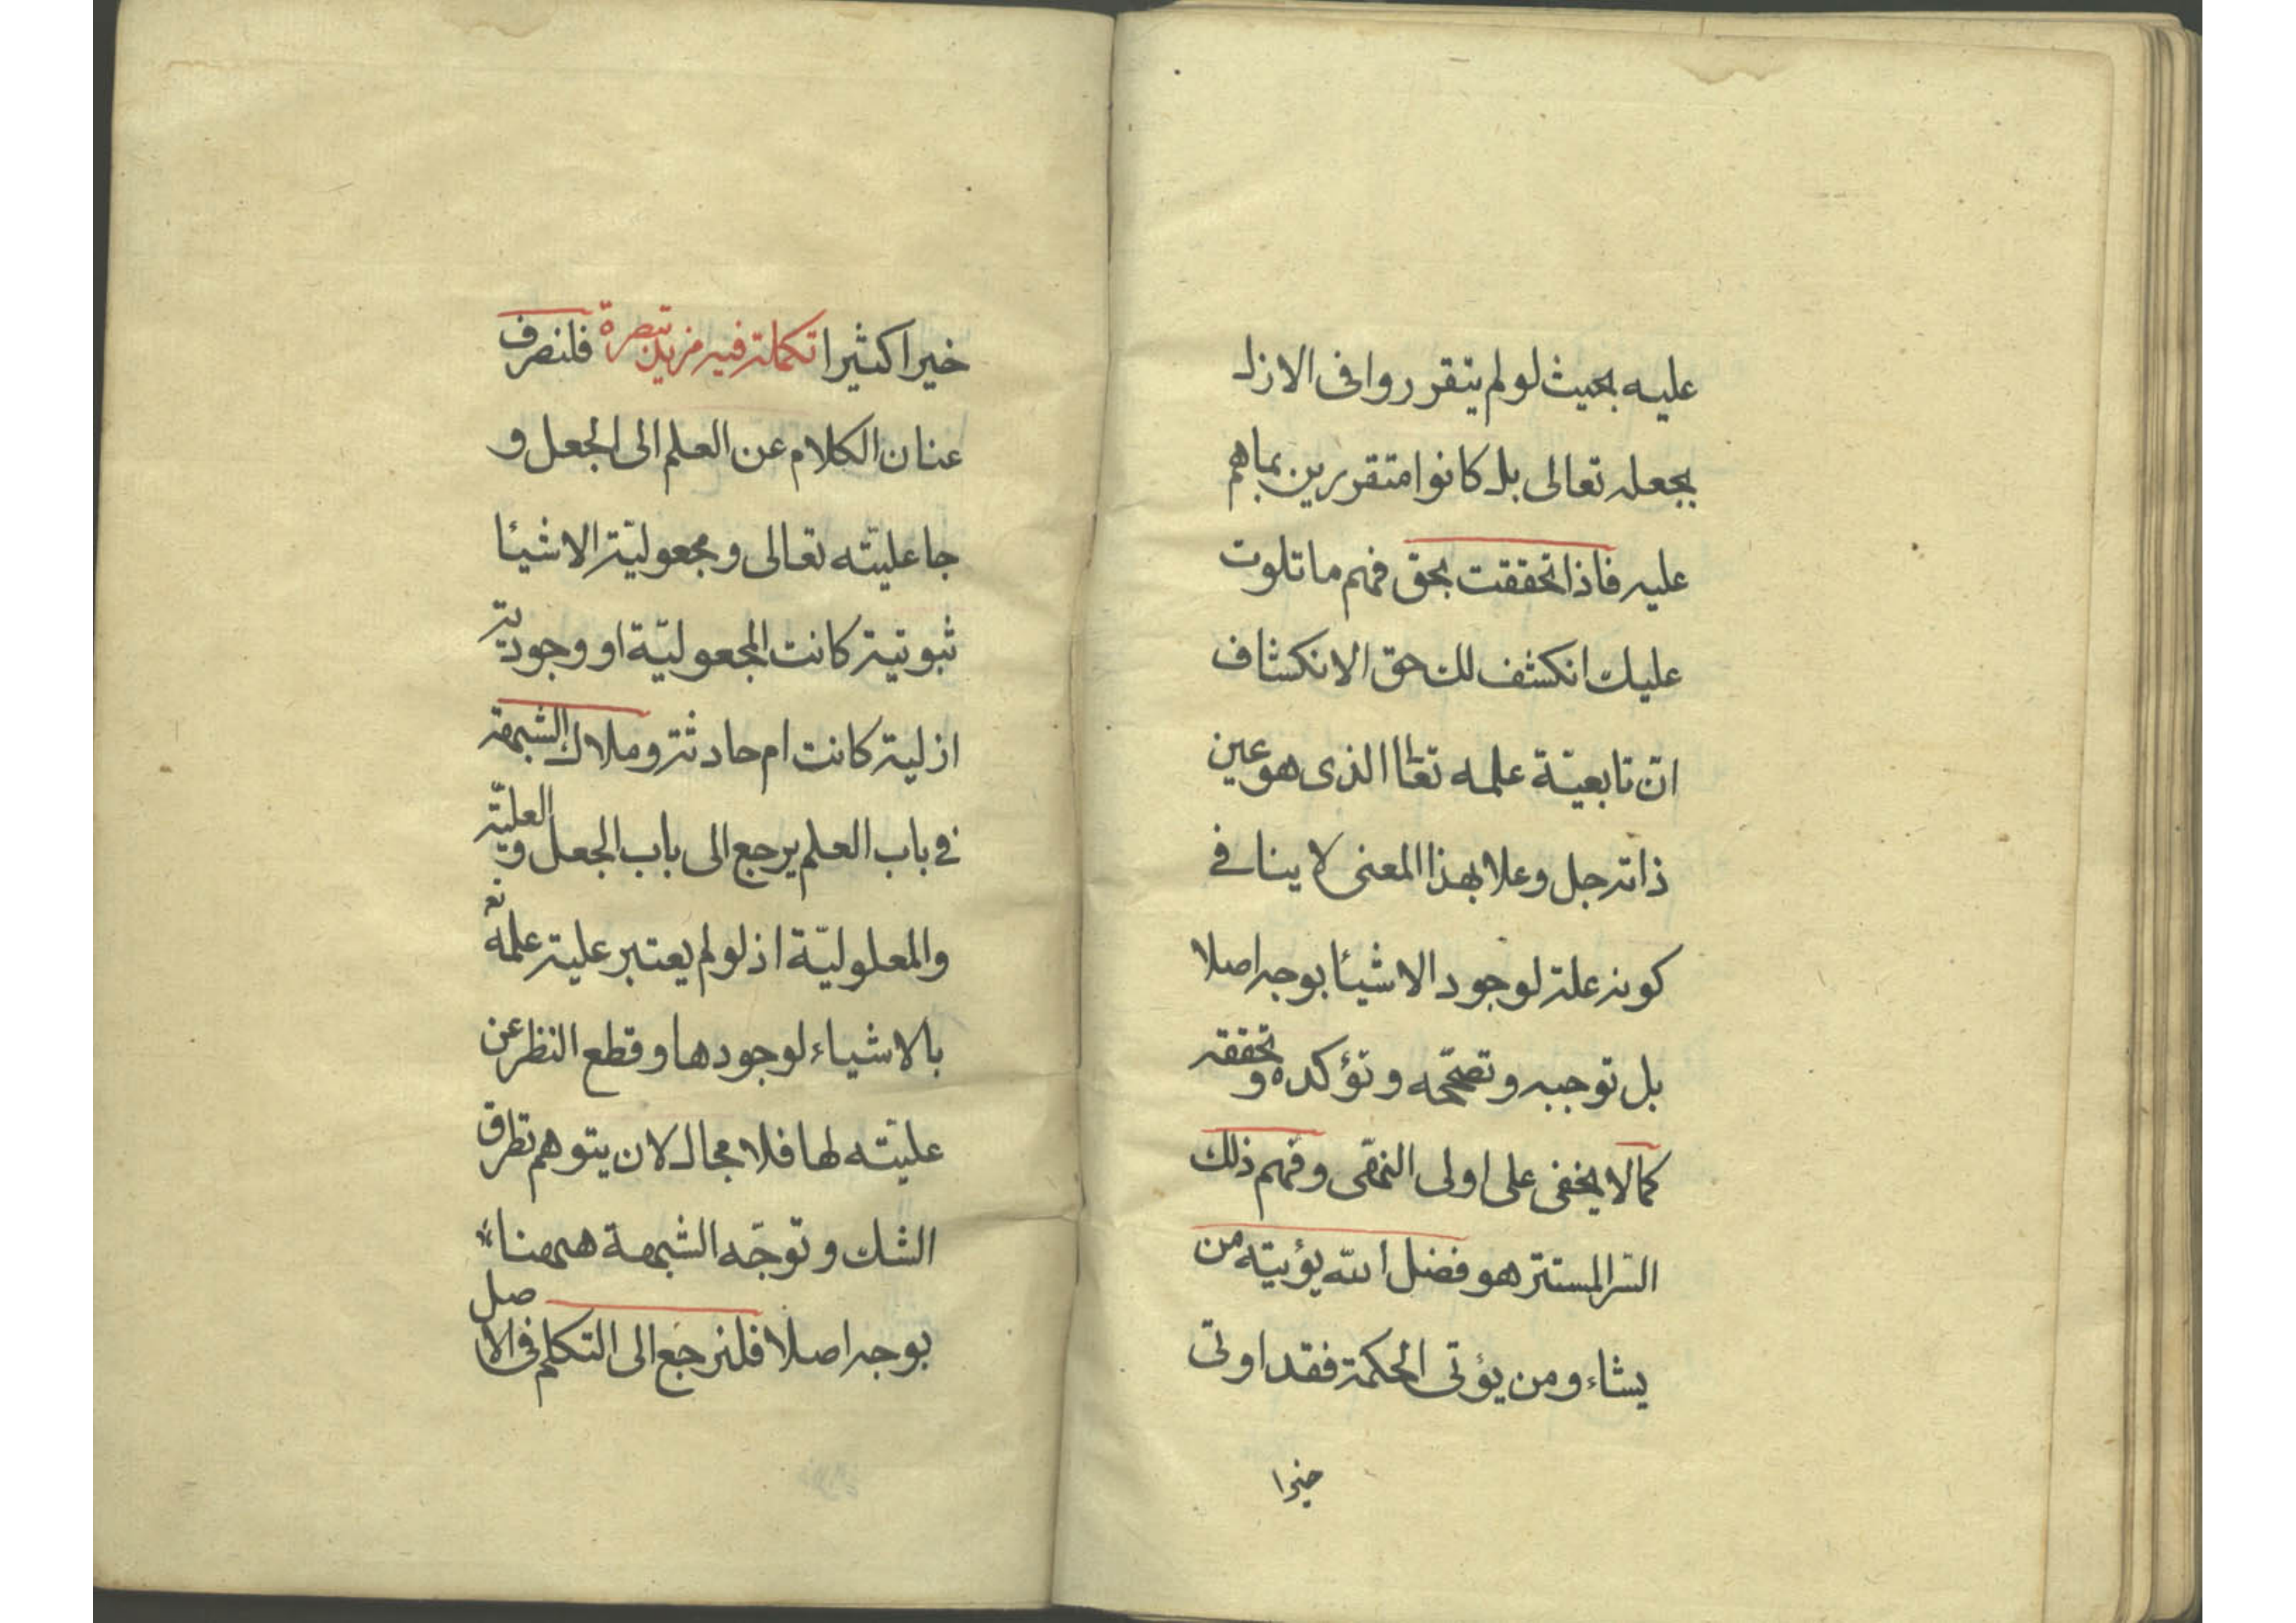 عليه بحيث لو لم يتقرروا فى الازل
بجعله تعالى بل كانوا متقررين بما هم
عليه فاذا تحققت بحق فهم ما تلوت
عليك انكشف لك حق الانكشاف
انّ تابعيّة علمه تعالى الذى هو عين
ذاته جل وعلا بهذا المعنى لا ينافى
كونه علة لوجود الاشيئا بوجه اصلا
بل توجبه وتصحّحه وتؤكده وتحققه
كما لا يخفى على اولى النهى وفهم ذلك
السّر المستتر هو فضل الله يؤتيه من
يشاء ومن يؤتى الحكمة فقد اوتى
خيرا
خيرا كثيرا تكملة فيه مزيد تبصرة فلنصرف
عنان الكلام عن العلم الى الجعل و
جاعليّته تعالى ومجعوليّة الاشيئا
ثبوتية كانت المجعوليّة او وجودية
ازلية كانت ام حادثة وملاك الشبهة
فى باب العلم يرجع الى باب الجعل و العليّة
والمعلوليّة اذ لو لم يعتبر علية علمه تع
بالاشياء لوجودها وقطع النظر عن
عليّته لها فلا مجال لان يتوهم تطرق
الشك وتوجّه الشبهة ههنا
بوجه اصلا فلنرجع الى التكلم فى الاصل